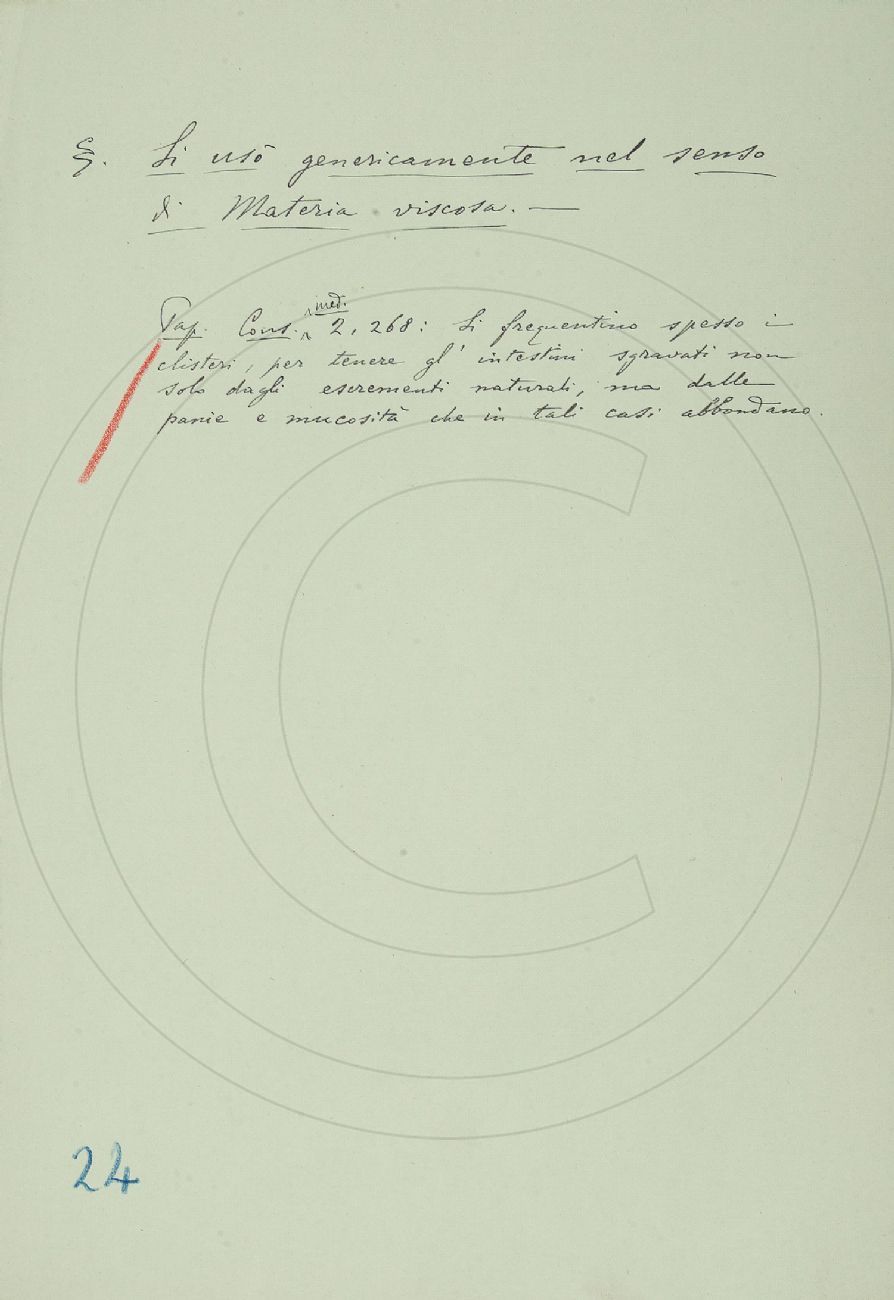 §. Si usò genericamente nel senso
di Materia viscosa. —
Pap. Cons. med. 2, 268: Si frequentino spesso i
clisteri, per tenere gl' intestini sgravati non
solo dagli escrementi naturali, ma dalle
panie e mucosità che in tali casi abbondano.
24